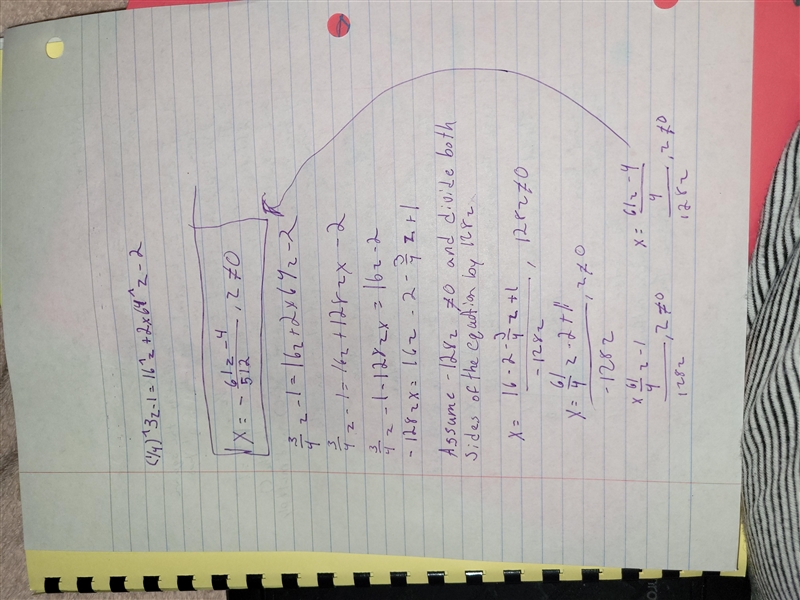 (1/4)^3z-1=16^z+2x64^z-2
x = - 61z-4/512, z≠0
3/4 z-1=16z+2x64z-2
3/4 z-1=16z+128zx-2
3/4 z-1-128zx=16z-2
-128zx=16z-2-3/4 z+1
Assume -128z ≠0 and divide both
sides of the equation by 128z
x= 16-2-3/4 z+1/-128z, 128z≠0
x= 61/4 z-2+1/-128z, z≠0
x 61/4 z-1/128z, z≠0
x= 61z-4/4/128z, z≠0